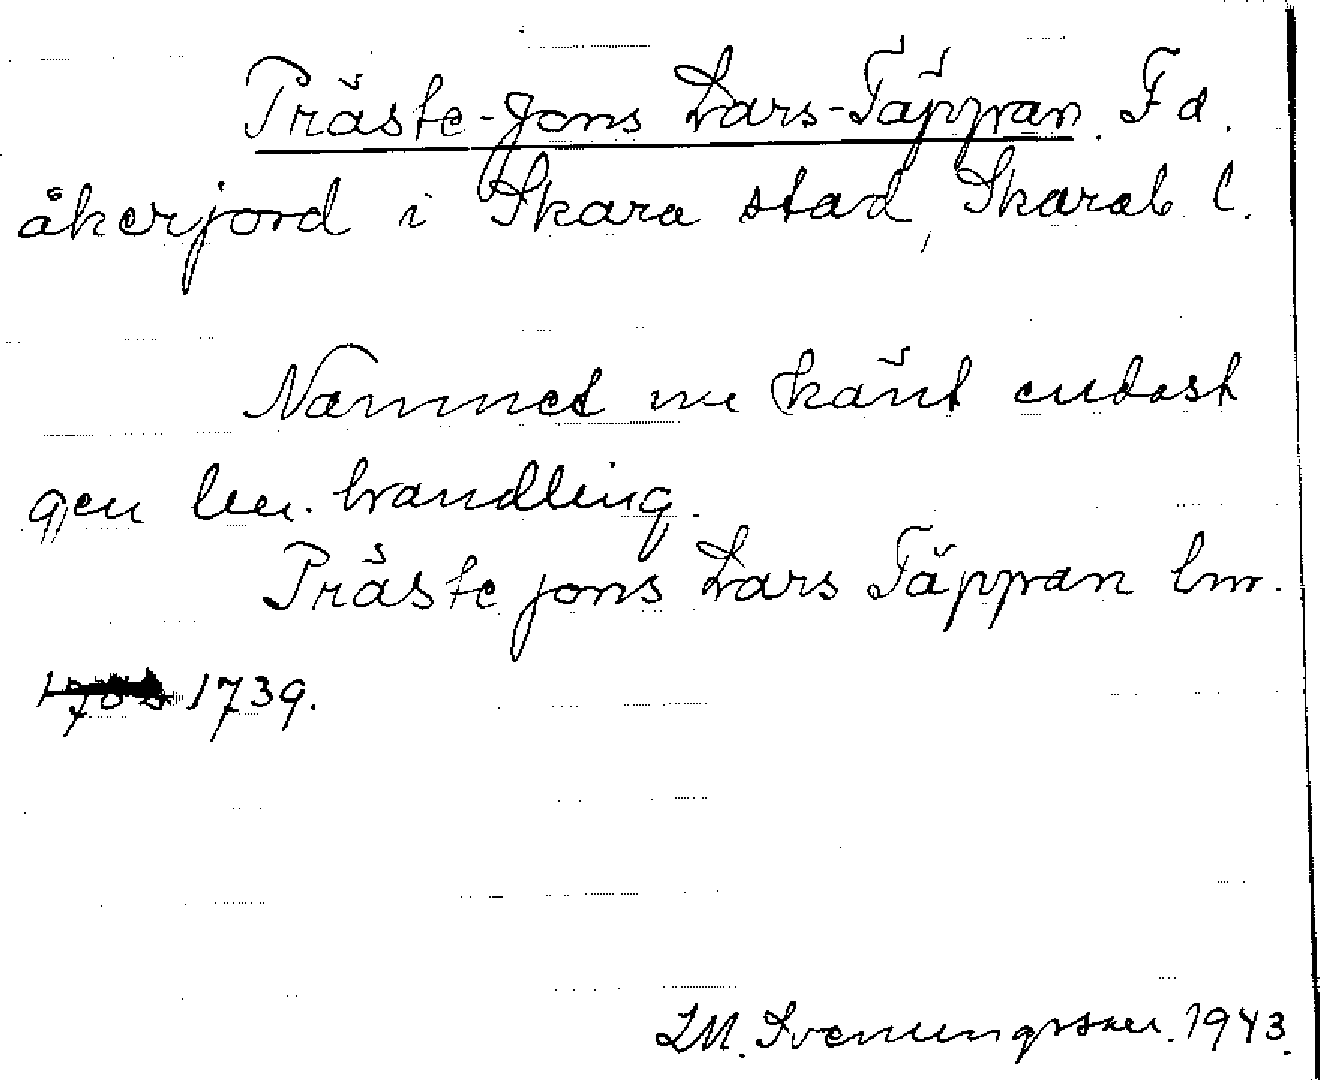 Präste-Jons Lars-Täppan. F d.
åkerjord i Skara stad, Skarab. l.
Namnet nu känt endast
gen lm. handling.
Präste jons Lars Täppan lm.
1739.
I.M. Svenungsson. 1943.